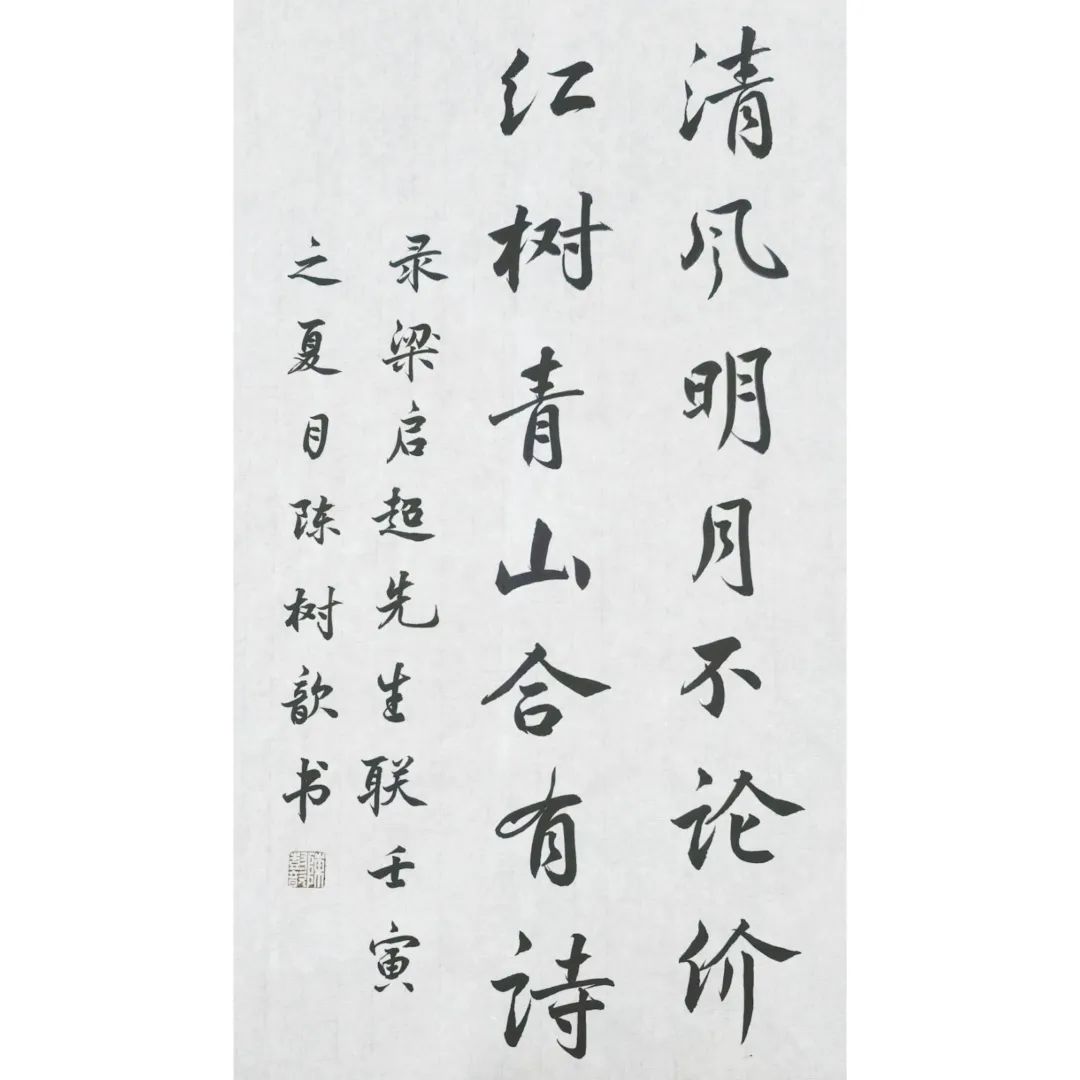 清风明月不论价
红树青山合有诗
录梁启超先生联壬寅
之夏日陈树歆书